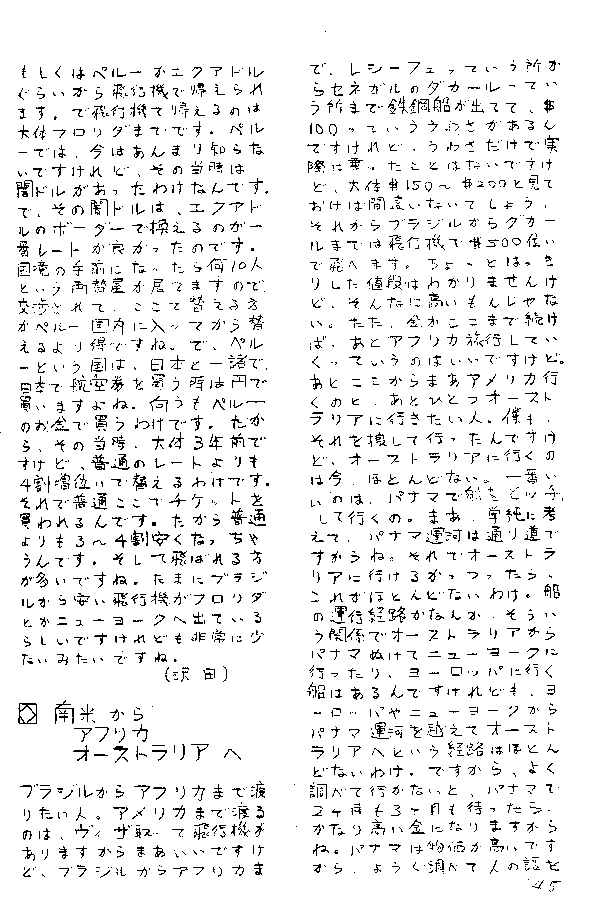 もしくはペルーかエクアドル
ぐらいから飛行機で帰えられ
ます。で飛行機で帰えるのは
大体フロリダまでです。ペル
ーでは、今はあんまり知らな
いですけれど、その当時は
闇ドルがあったわけなんです。
で、その闇ドルは、エクアド
ルのボーダーで換えるのが一
番レートが良かったのです。
国境の手前になったら何10人
という両替屋が居てますので、
交渉されて、ここで替える方
がペルー国内に入ってから替
えるより得ですね。で、ペル
ーという国は、日本と一諸で、
日本で航空券を買う時は円で
買いますよね。向うもペルー
のお金で買うわけです。だか
ら、その当時、大体3年前で
すけど、普通のレートよりも
4割増位いで替えるわけです。
それで普通ここでチケットを
買われるんです。だから普通
よりも3〜4割安くなっちゃ
うんです。そして飛ばれる方
が多いですね。たまにブラジ
ルから安い飛行機がフロリダ
とかニューヨークへ出ている
らしいですけれども非常に少
ないみたいですね。
(沢田)
南米から
アフリカ
オーストラリアへ
ブラジルからアフリカまで渡
りたい人。アメリカまで渡る
のは、ヴィザ取って飛行機が
ありますからまあいいですけ
ど、ブラジルからアフリカま
で、レシーフェっていう所か
らセネガルのダカールってい
う所まで鉄鋼船が出てて、$
100っていううわさがあるん
ですけれど、うわさだけで実
際に乗ったことはないですけ
ど、大体$150〜$200と見て
おけば間違いないでしょう。
それからブラジルからダカー
ルまでは飛行機で$500位い
で飛べます。ちょっとはっき
りした値段はわかりませんけ
ど、そんなに高いもんじゃな
い。ただ、金がここまで続け
ば、あとアフリカ旅行してい
くっていうのはいいですけど。
あとここからまあアメリカ行
くのと、あとひとつオースト
ラリアに行きたい人。僕も、
それを捜して行ったんですけ
ど、オーストラリアに行くの
は今、ほとんどない。一番い
いのは、パナマで船をヒッチ
して行くの。まあ、単純に考
えて、パナマ運河は通り道で
すからね。それでオーストラ
リアに行けるかっつったら、
これがほとんどないわけ。船
の運行経路かなんか、そうい
う関係でオーストラリアから
パナマぬけてニューヨークに
行ったり、ヨーロッパに行く
船はあるんですけれども、ヨ
ーロッパやニューヨークから
パナマ運河を越えてオースト
ラリアへという経路はほとん
どないわけ。ですから、よく
調べて行かないと、パナマで
2ヶ月も3ヶ月も待ったら、
かなり高い金になりますから
ね。パナマは物価が高いです
から、ようく調べて人の話を
45